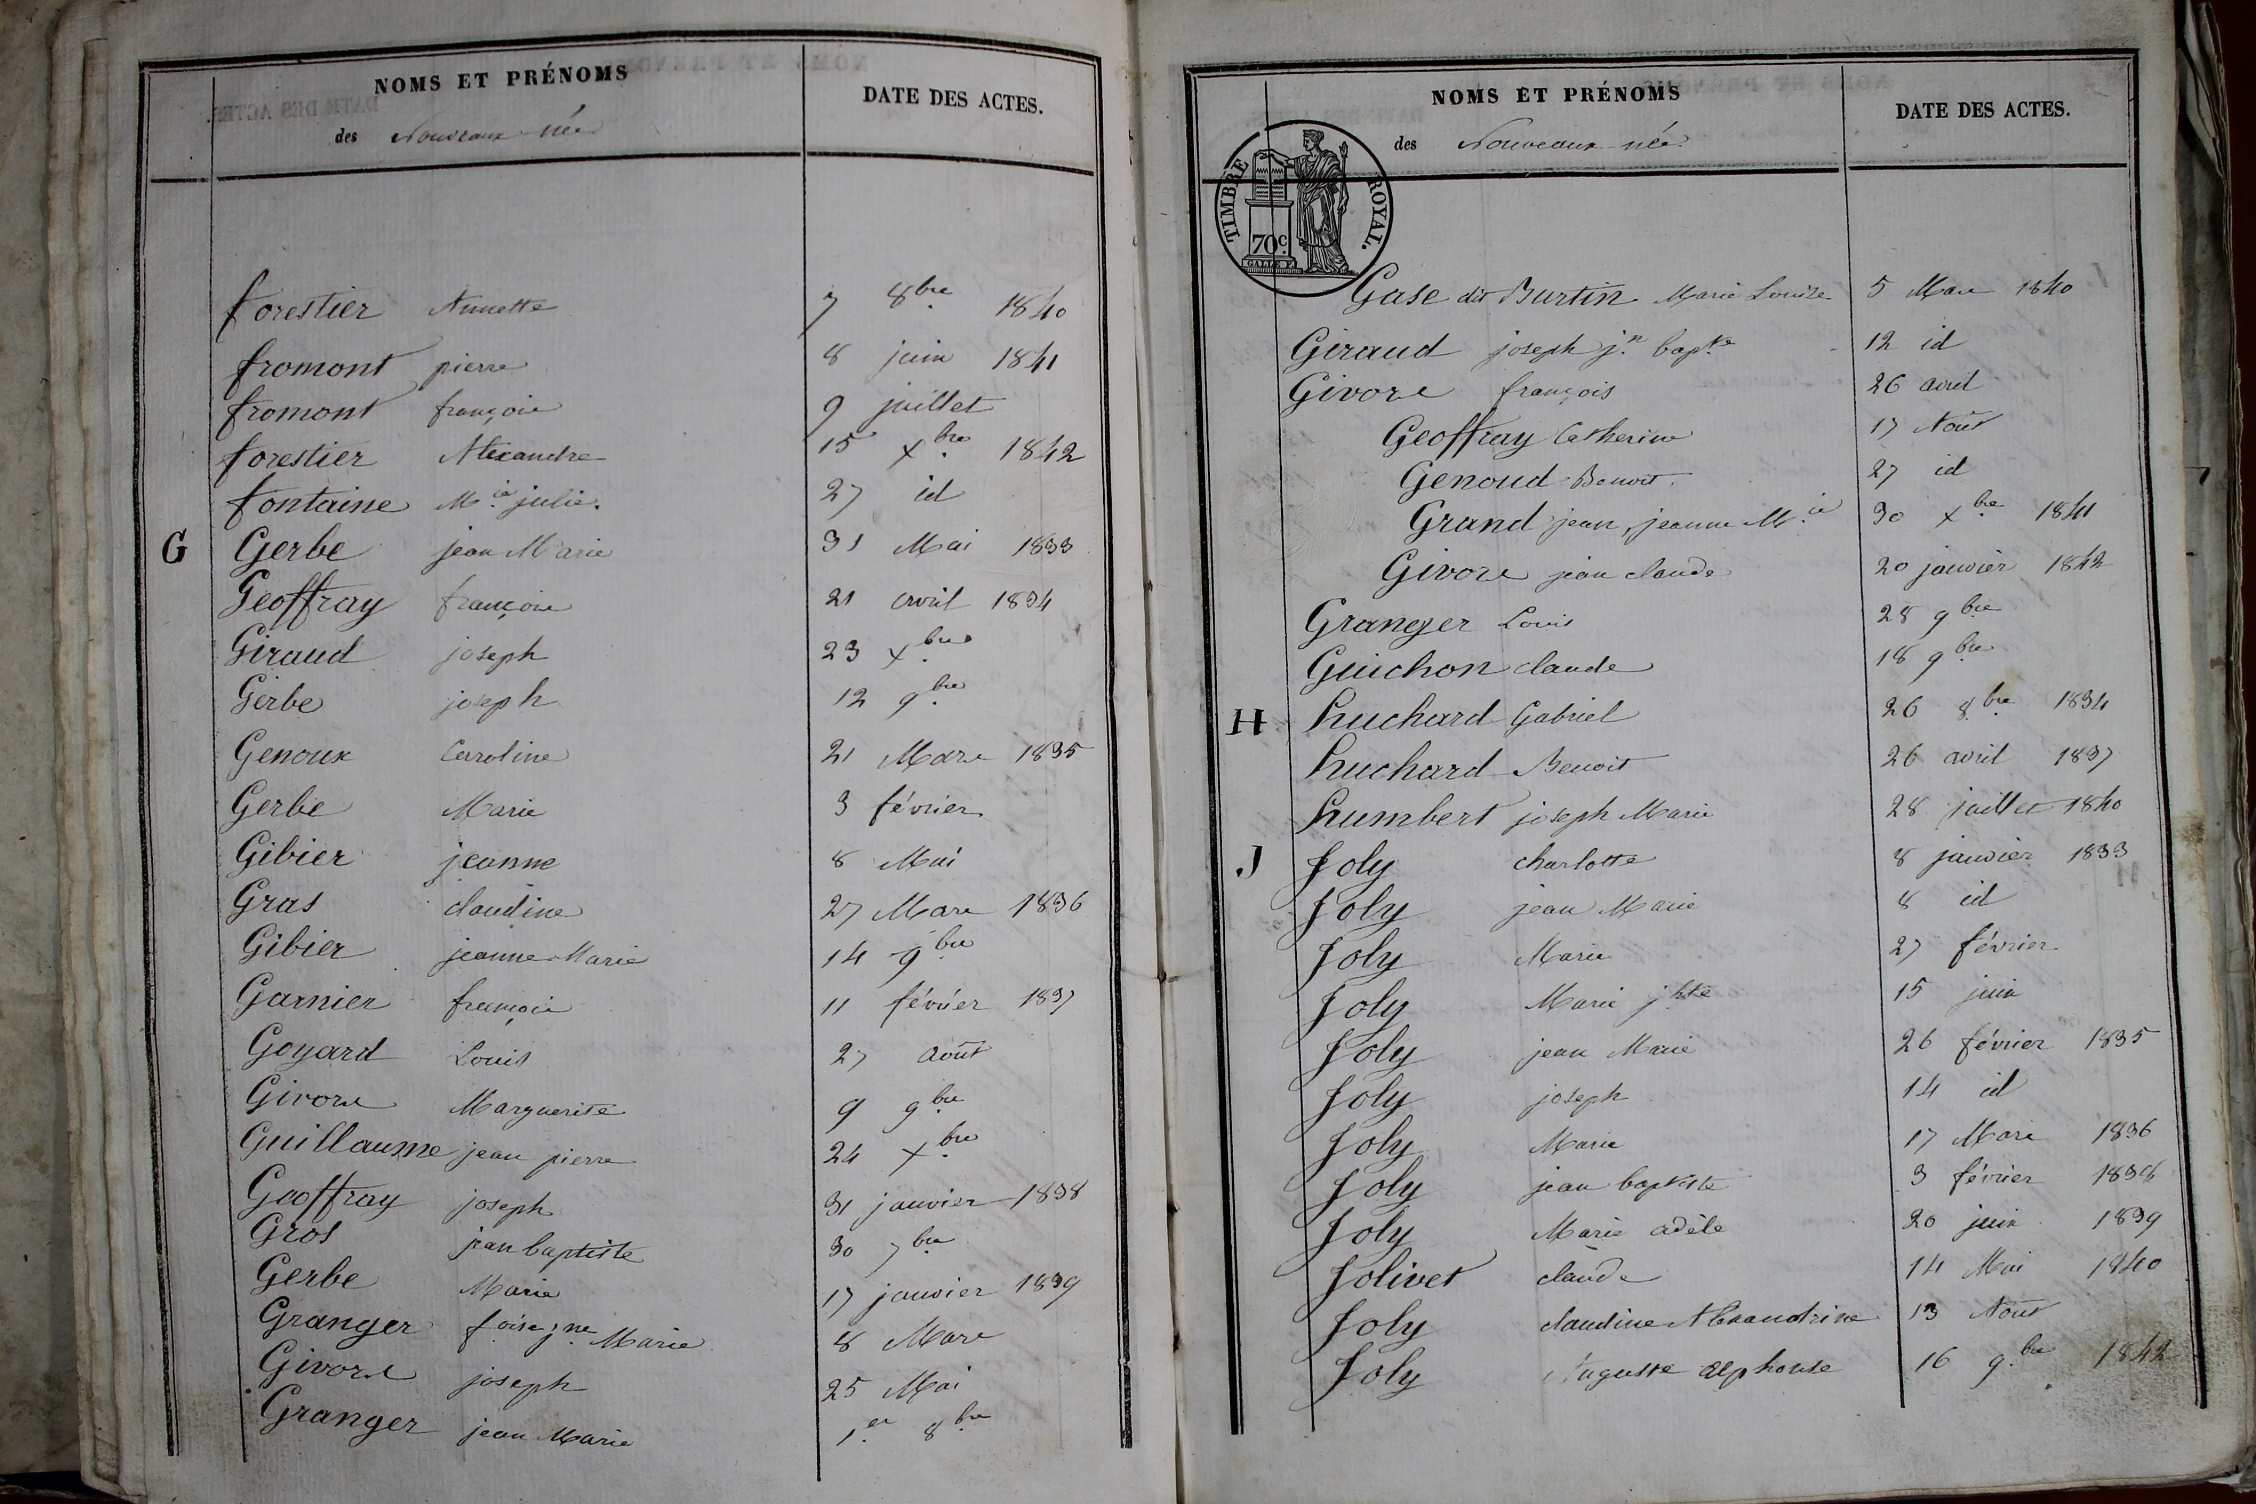 NOMS ET PRÉNOMS
des Nouveaux-nés
DATE DES ACTES.
forestier Annette 7 8bre 1840
fromont pierre 8 juin 1841
fromont françois 9 juillet
forestier Alexandre 15 xbre 1842
fontaine Mie julie. 27 id
G Gerbe jean Marie 31 Mai 1833
Geoffray françois 21 avril 1834
Giraud joseph 23 xbre
Gerbe joseph 12 9bre
Genoux Caroline 21 Mars 1835
Gerbe Marie 3 février
Gibier jeanne 8 Mai
Gras claudine 27 Mars 1836
Gibier jeanne Marie 14 9bre
Garnier françois 11 février 1837
Goyard Louis 27 août
Givore Marguerite 9 9bre
Guillaume jean pierre 24 xbre
Geoffray joseph 31 janvier 1838
Gros jean baptiste 30 7bre
Gerbe Marie 17 janvier 1839
Granger foise jne Marie 8 Mars
Givore joseph 25 Mai
Granger jean Marie 1er 8bre
NOMS ET PRÉNOMS
des Nouveaux-nés
DATE DES ACTES.
TIMBRE ROYAL.
70c
Gase dit Burtin Marie Louise 5 Mars 1840
Giraud joseph jn bapte 12 id
Givore françois 26 avril
Geoffray Catherine 17 Août
Genoud Benoit 27 id
Grand jean, jeanne Mie 30 xbre 1841
Givore jean claude 20 janvier 1842
Granger Louis 28 9bre
Guichon claude 18 9bre
H huchard Gabriel 26 8bre 1834
huchard Benoit 26 avril 1837
humbert joseph Marie 28 juillet 1840
J Joly charlotte 8 janvier 1833
Joly jean Marie 8 id
Joly Marie 27 février
Joly Marie jphte 15 juin
Joly jean Marie 26 février 1835
Joly joseph 14 id
Joly Marie 17 Mars 1836
Joly jean baptiste 3 février 1838
Joly Marie adèle 20 juin 1839
Jolivet claude 14 Mai 1840
Joly claudine Alexandrine 13 Août
Joly Auguste alphonse 16 9.bre 1842